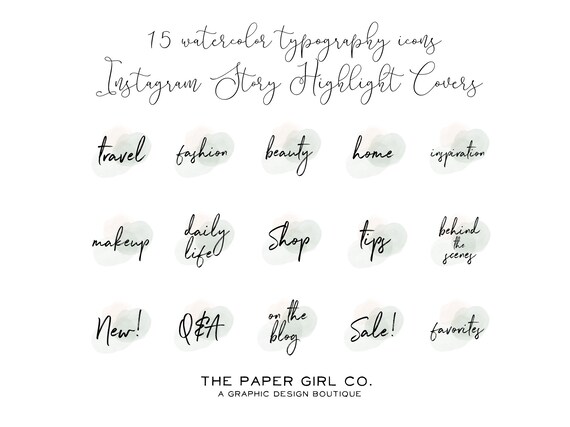 15 watercolor typography icons
Instagram Story Highlight Covers
travel
fashion
beauty
home
inspiration
makeup
daily
life
Shop
tips
behind
the
scenes
New!
Q&A
on the
blog
Sale!
favorites
THE PAPER GIRL CO.
A GRAPHIC DESIGN BOUTIQUE